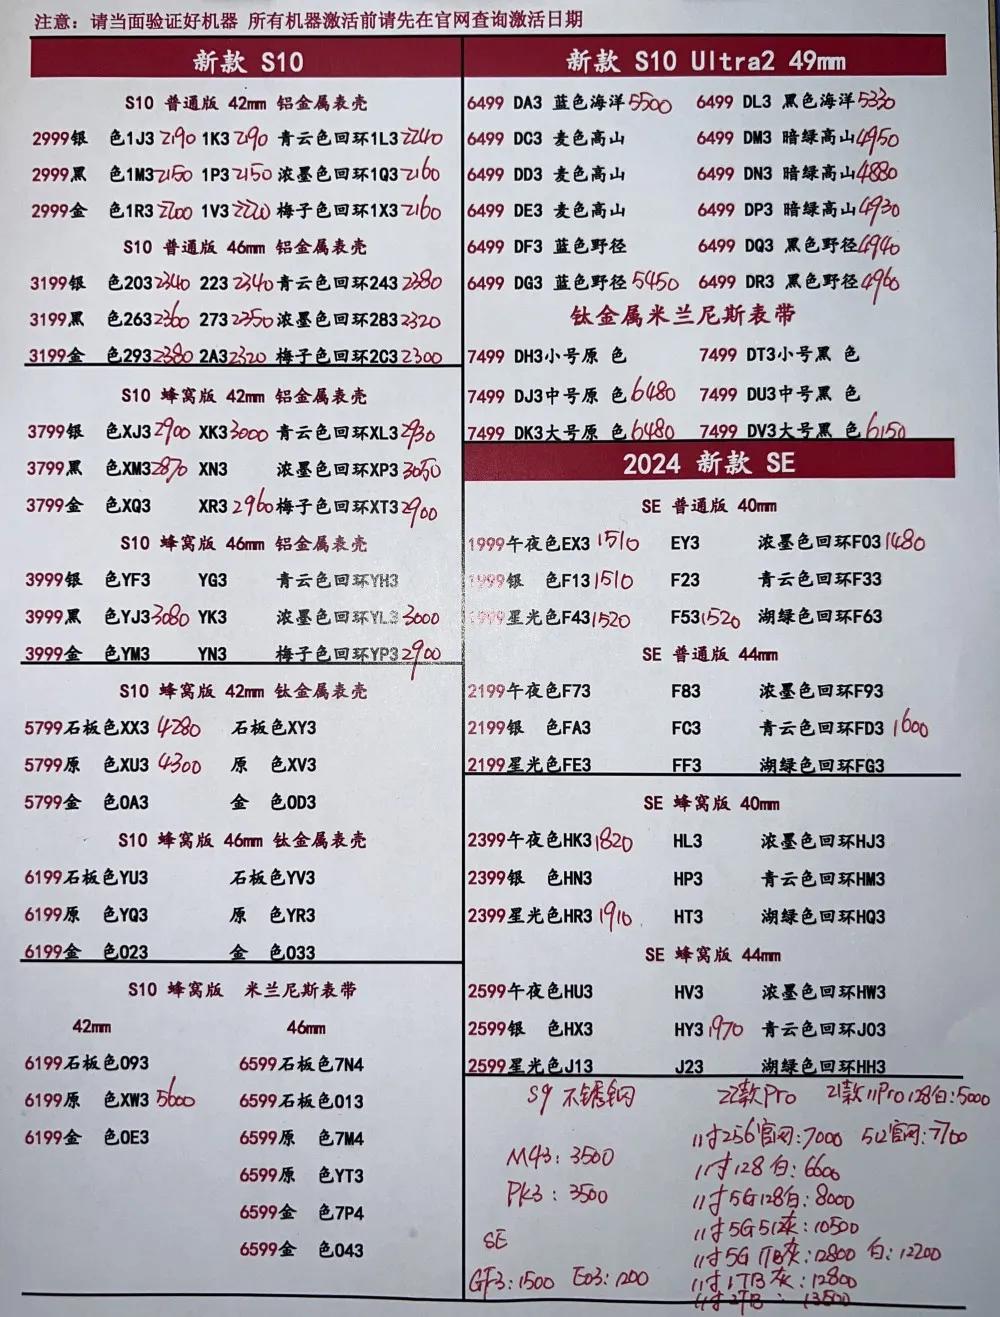 注意：请当面验证好机器 所有机器激活前请先在官网查询激活日期
新款 S10
S10 普通版 42mm 铝金属表壳
2999银 色1J3 2190 1K3 2190 青云色回环1L3 2240
2999黑 色1M3 2150 1P3 2150 浓墨色回环1Q3 2160
2999金 色1R3 2200 1V3 2220 梅子色回环1X3 2160
S10 普通版 46mm 铝金属表壳
3199银 色203 2340 223 2340 青云色回环243 2380
3199黑 色263 2360 273 2350 浓墨色回环283 2320
3199金 色293 2380 2A3 2320 梅子色回环2C3 2300
S10 蜂窝版 42mm 铝金属表壳
3799银 色XJ3 2900 XK3 3000 青云色回环XL3 2930
3799黑 色XM3 2870 XN3 浓墨色回环XP3 3050
3799金 色XQ3 XR3 2960 梅子色回环XT3 2900
S10 蜂窝版 46mm 铝金属表壳
3999银 色YF3 YG3 青云色回环YH3
3999黑 色YJ3 3080 YK3 浓墨色回环YL3 3000
3999金 色YM3 YN3 梅子色回环YP3 2900
S10 蜂窝版 42mm 钛金属表壳
5799石板色XX3 4280 石板色XY3
5799原 色XU3 4300 原 色XV3
5799金 色0A3 金 色0D3
S10 蜂窝版 46mm 钛金属表壳
6199石板色YU3 石板色YV3
6199原 色YQ3 原 色YR3
6199金 色023 金 色033
S10 蜂窝版 米兰尼斯表带
42mm 46mm
6199石板色093 6599石板色7N4
6199原 色XW3 5600 6599石板色013
6199金 色0E3 6599原 色7M4
6599原 色YT3
6599金 色7P4
6599金 色043
新款 S10 Ultra2 49mm
6499 DA3 蓝色海洋 5500 6499 DL3 黑色海洋 5330
6499 DC3 麦色高山 6499 DM3 暗绿高山 4950
6499 DD3 麦色高山 6499 DN3 暗绿高山 4880
6499 DE3 麦色高山 6499 DP3 暗绿高山 4930
6499 DF3 蓝色野径 6499 DQ3 黑色野径 4940
6499 DG3 蓝色野径 5450 6499 DR3 黑色野径 4960
钛金属米兰尼斯表带
7499 DH3小号原 色 7499 DT3小号黑 色
7499 DJ3中号原 色 6480 7499 DU3中号黑 色
7499 DK3大号原 色 6480 7499 DV3大号黑 色 6150
2024 新款 SE
SE 普通版 40mm
1999午夜色EX3 1510 EY3 浓墨色回环F03 1480
1999银 色F13 1510 F23 青云色回环F33
1999星光色F43 1520 F53 1520 湖绿色回环F63
SE 普通版 44mm
2199午夜色F73 F83 浓墨色回环F93
2199银 色FA3 FC3 青云色回环FD3 1600
2199星光色FE3 FF3 湖绿色回环FG3
SE 蜂窝版 40mm
2399午夜色HK3 1820 HL3 浓墨色回环HJ3
2399银 色HN3 HP3 青云色回环HM3
2399星光色HR3 1910 HT3 湖绿色回环HQ3
SE 蜂窝版 44mm
2599午夜色HU3 HV3 浓墨色回环HW3
2599银 色HX3 HY3 1970 青云色回环J03
2599星光色J13 J23 湖绿色回环HH3
S9 不锈钢
M43：3500
PK3：3500
SE
GF3：1500 E03：1200
22款Pro 21款11Pro128白：5000
11寸256官网：7000 512官网：7700
11寸128白：6600
11寸5G128白：8000
11寸5G512灰：10500
11寸5G 1TB灰：12800 白：12200
11寸1TB灰：12800
11寸2TB：13500